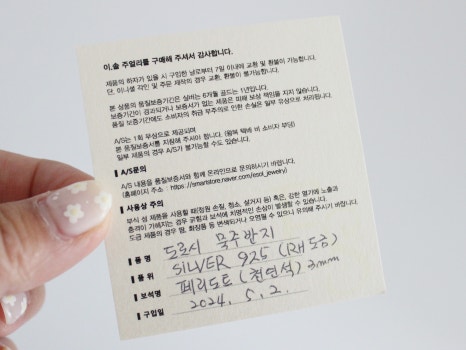 이.솔 쥬얼리를 구매해 주셔서 감사합니다.
제품의 하자가 있을 시 구입한 날로부터 7일 이내에 교환 및 환불이 가능합니다.
단, 이니셜 각인 및 주문 제작의 경우 교환, 환불이 불가능합니다.
본 상품의 품질보증기간은 실버는 6개월 골드는 1년입니다.
보증기간이 경과되거나 보증서가 없는 제품은 피해 보상 책임을 지지 않습니다.
품질 보증기간에도 소비자의 취급 부주의로 인한 손실은 일부 유상으로 처리됩니다.
A/S는 1회 무상으로 제공되며
본 품질보증서를 지참해 주셔야 합니다. (왕복 택배 비 소비자 부담)
일부 제품의 경우 A/S가 불가능할 수도 있습니다.
A/S문의
A/S 내용을 품질보증서와 함께 온라인으로 문의하시기 바랍니다.
(홈페이지 주소 https://smartstore.naver.com/esol_jewelry)
사용상 주의
부식 성 제품을 사용할 때(정원 손질, 청소, 설거지 등) 혹은, 강한 열기에 노출과
충격이 가해지는 경우 긁힘과 보석에 치명적인 손상이 발생할 수 있습니다.
도금 제품의 경우 땀, 화장품 등 변색되거나 오염될 수 있으니 유의해 주시기 바랍니다.
품 명 도로시 묵주반지
품 위 SILVER 925 (R도금)
보석명 페리도트 (천연석) 2mm
구입일 2024. 5. 2.